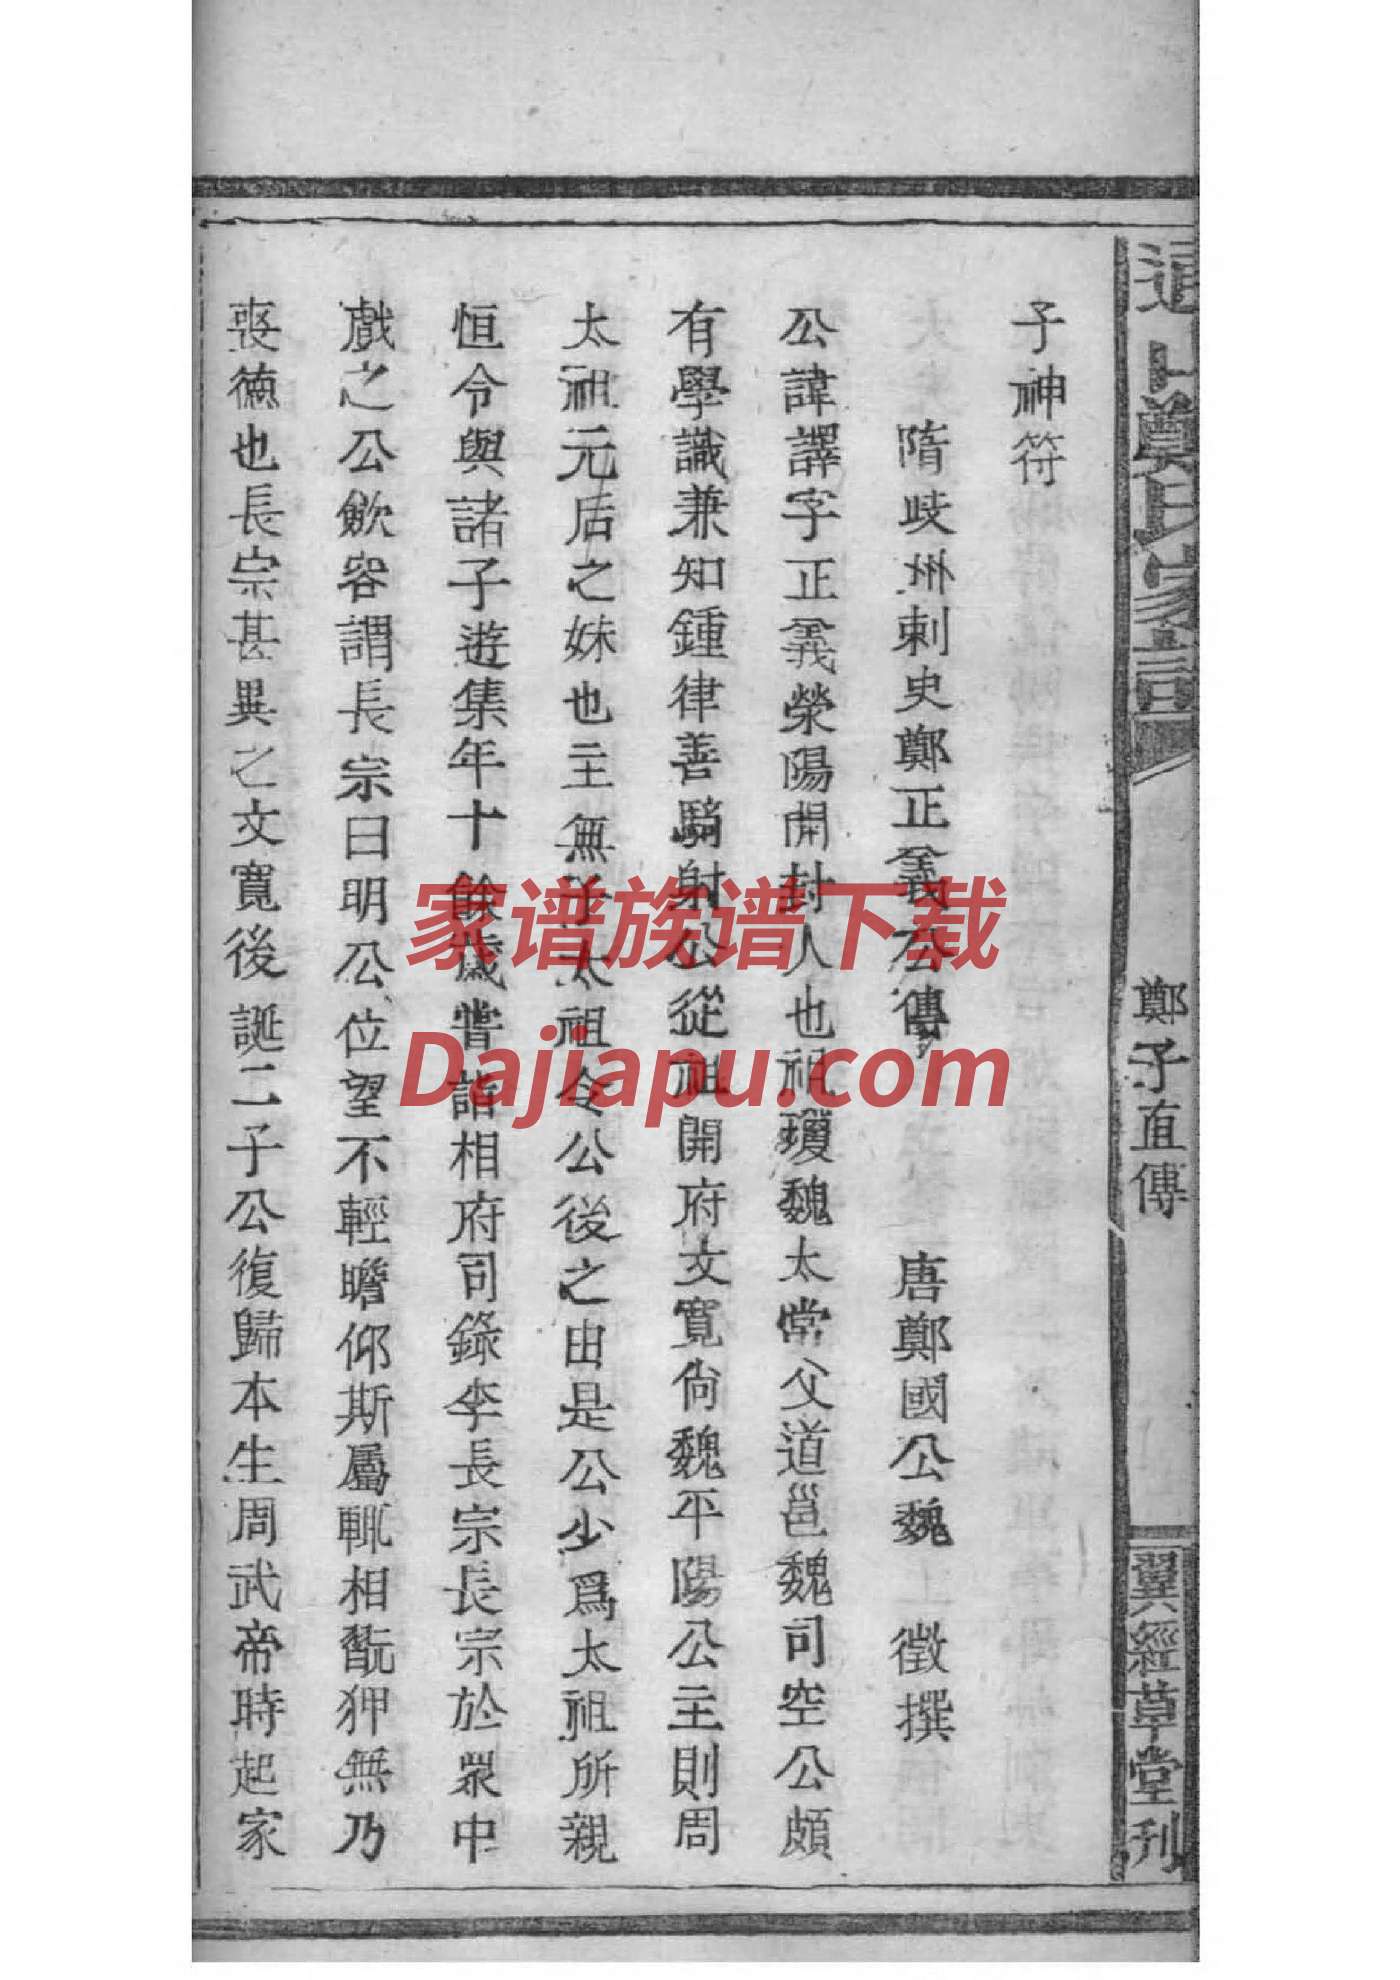 氏家譜
鄭子直傳
翼經草堂刊
子神符
隋歧州刺史鄭正義公傳 唐鄭國公魏 徵撰
公諱譯字正義滎陽開封人也祖瓊魏太常父道邕魏司空公頗
有學識兼知鍾律善騎射公從祖開府文寬尙魏平陽公主則周
太祖元后之妹也主無子太祖令公後之由是公少爲太祖所親
恒令與諸子遊集年十餘歲嘗詣相府司錄李長宗長宗於衆中
戲之公歛容謂長宗曰明公位望不輕瞻仰斯屬輒相翫狎無乃
喪德也長宗甚異之文寬後誕二子公復歸本生周武帝時起家
家谱族谱下载
Dajiapu.com